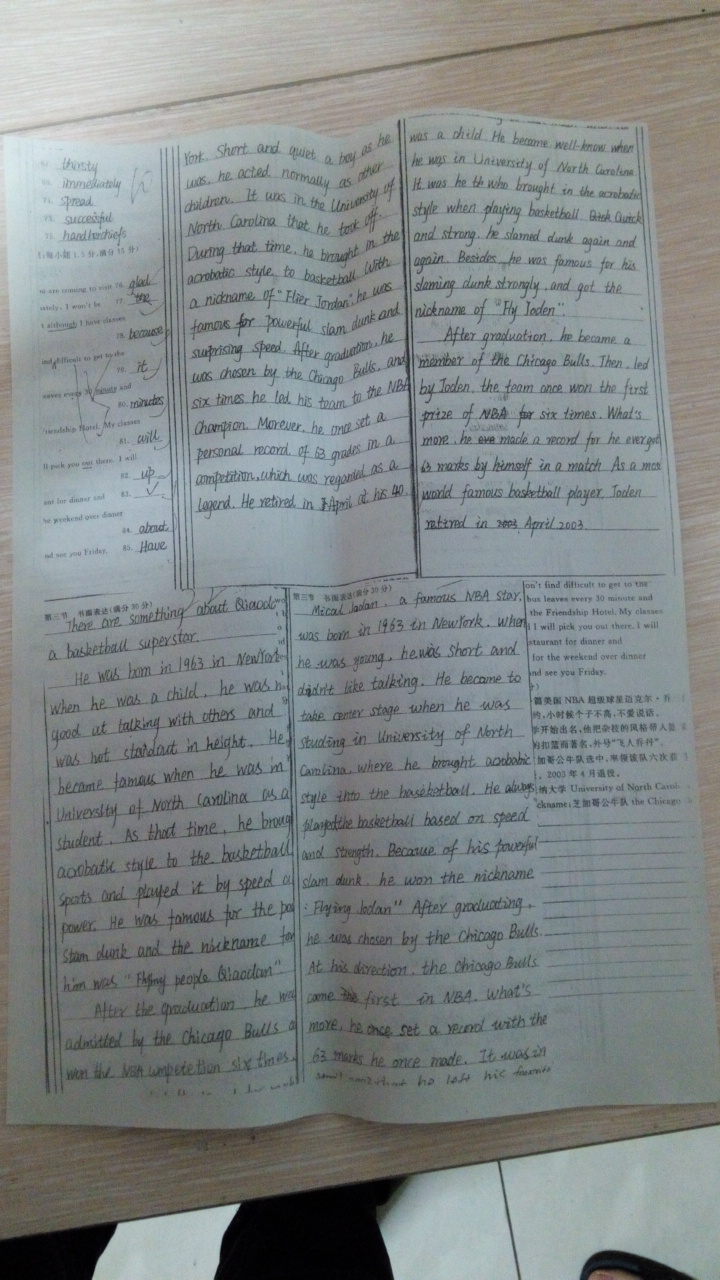 thirsty
immediately
spread
successful
handkerchiefs
(每小题1.5分,满分15分)
are coming to visit 76. glad
I won't be 77. the
I although I have classes
78. because
difficult to get to the
79. it
leaves every 30 minute and
80. minutes
Friendship Hotel. My classes
81. will
I'll pick you out there. I will
82. up
for dinner and 83. ✓
the weekend over dinner
84. about
and see you Friday. 85. Have
York. Short and quiet a boy as he
was, he acted normally as other
children. It was in the University of
North Carolina that he took off.
During that time, he brought in the
acrobatic style to basketball. With
a nickname of "Flier Jordan", he was
famous for powerful slam dunk and
surprising speed. After graduation, he
was chosen by the Chicago Bulls, and
six times he led his team to the NBA
Champion. Morever, he once set a
personal record of 63 grades in a
competition, which was regarded as a
legend. He retired in April at his 40.
was a child. He became well-know when
he was in University of North Carolina.
It was he who brought in the acrobatic
style when playing basketball. Quick
and strong, he slamed dunk again and
again. Besides, he was famous for his
slaming dunk strongly, and got the
nickname of "Fly Joden".
After graduation, he became a
member of the Chicago Bulls. Then, led
by Joden, the team once won the first
prize of NBA for six times. What's
more, he made a record for he ever got
63 marks by himself in a match. As a most
world famous basketball player, Joden
retired in April 2003.
第三节 书面表达(满分30分)
There are something about Qiaodan
a basketball superstar.
He was born in 1963 in NewYork
when he was a child, he was
good at talking with others and
was not standart in height. He
became famous when he was in
University of North Carolina as a
student. As that time, he
acrobatic style to the basketball
sports and played it by speed
power. He was famous for the
slam dunk and the nickname for
him was "Flying people Qiaodan"
After the graduation he
admitted by the Chicago Bulls
won the NBA competetion six times.
第三节 书面表达(满分30分)
Mical Jodan, a famous NBA star,
was born in 1963 in NewYork. When
he was young, he was short and
didn't like talking. He became to
take center stage when he was
studing in University of North
Carolina, where he brought acrobatic
style into the basketball. He always
played the basketball based on speed
and strength. Because of his powerful
slam dunk, he won the nickname
"Flying Jodan" After graduating,
he was chosen by the Chicago Bulls.
At his direction, the Chicago Bulls
came first in NBA. What's
more, he once set a record with the
63 marks he once made. It was in
that he left his favorite
on't find difficult to get to the
bus leaves every 30 minute and
the Friendship Hotel. My classes
I will pick you out there. I will
staurant for dinner and
for the weekend over dinner
nd see you Friday.
篇美国 NBA 超级球星迈克尔·乔
约,小时候个子不高,不爱说话。
学开始出名,他把杂技的风格带入
的扣篮而著名,外号"飞人乔丹"。
加哥公牛队选中,率领该队六次获
2003 年 4 月退役。
纳大学 University of North
ckname;芝加哥公牛队 the Chicago